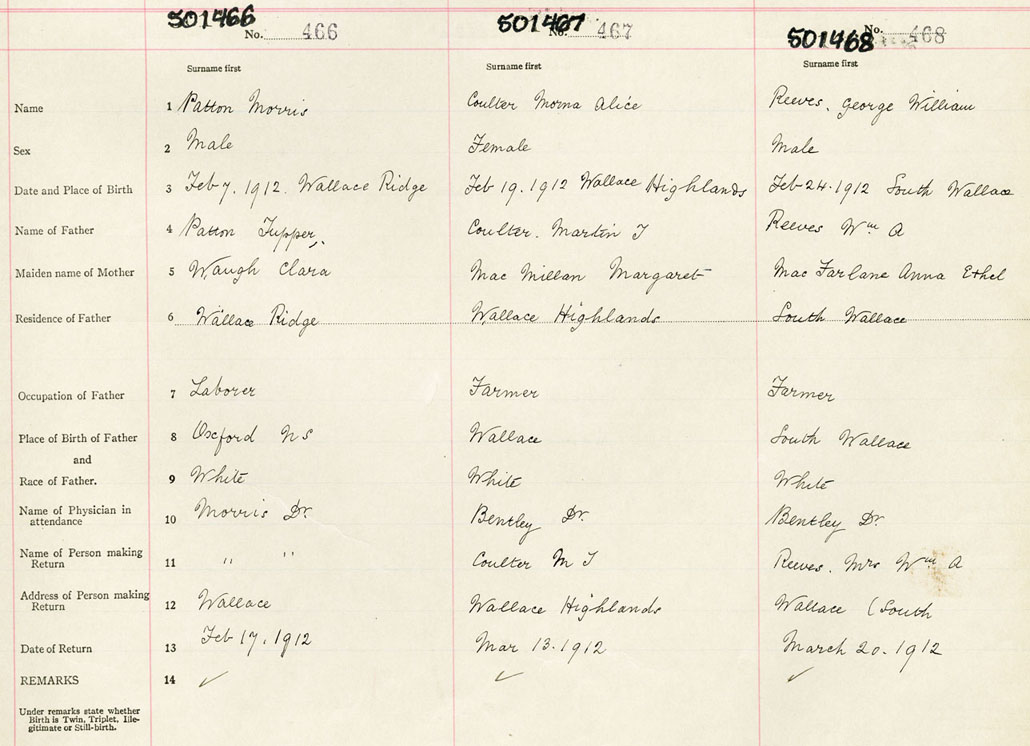 501466 501467 501468
No. 466 No. 467 No. 468
Surname first Surname first Surname first
Name 1 Patton Morris Coulter Morna Alice Reeves, George William
Sex 2 Male Female Male
Date and Place of Birth 3 Feb 7, 1912. Wallace Ridge Feb 19, 1912 Wallace Highlands Feb 24-1912 South Wallace
Name of Father 4 Patton Tupper, Coulter. Martin J Reeves Wm A
Maiden name of Mother 5 Waugh Clara Mac Millan Margaret Mac Farlane Anna Ethel
Residence of Father 6 Wallace Ridge Wallace Highlands South Wallace
Occupation of Father 7 Laborer Farmer Farmer
Place of Birth of Father 8 Oxford N S Wallace South Wallace
and
Race of Father. 9 White White White
Name of Physician in
attendance 10 Morris Dr. Bentley Dr. Bentley Dr.
Name of Person making
Return 11 " " Coulter M J Reeves, Mrs Wm A
Address of Person making
Return 12 Wallace Wallace Highlands Wallace (South
Date of Return 13 Feb 17, 1912 Mar 13-1912 March 20-1912
REMARKS 14 ✓ ✓ ✓
Under remarks state whether
Birth is Twin, Triplet, Ille-
gitimate or Still-birth.